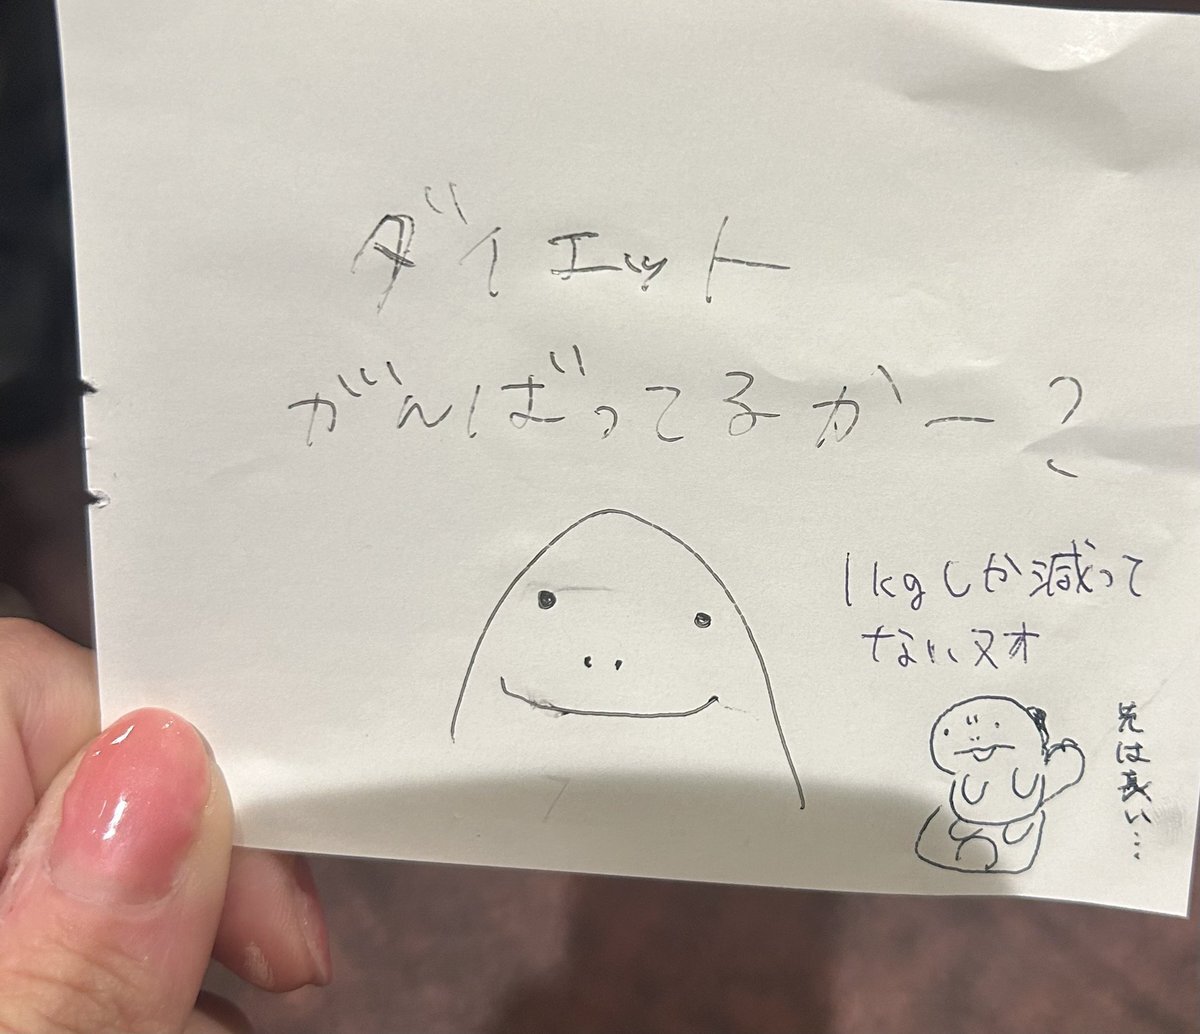 ダイエット
がんばってるかー?
1kgしか減って
ないヌオ
先は長い…